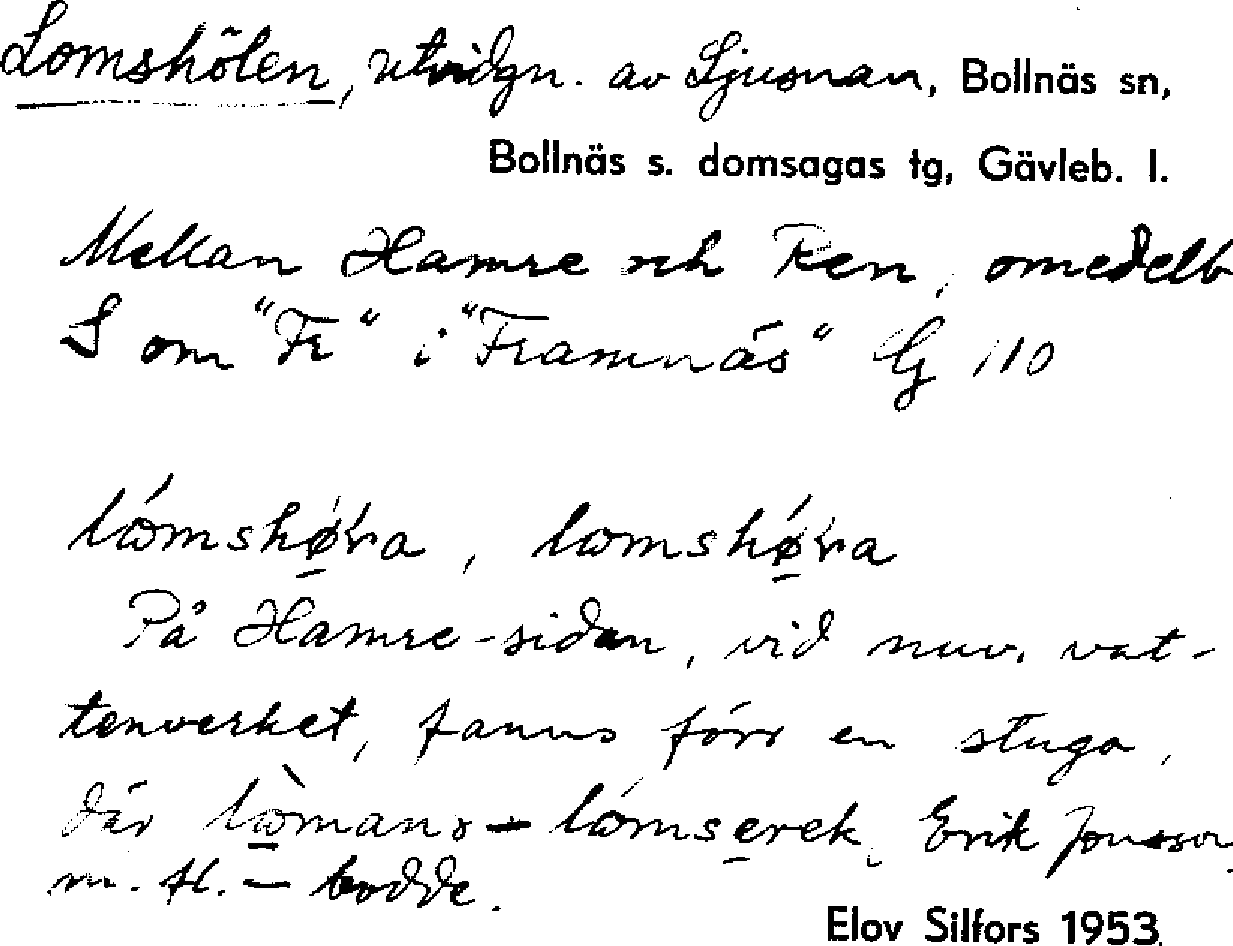 Lomshölen, utvidgn. av Ljusnan, Bollnäs sn,
Bollnäs s. domsagas tg, Gävleb. l.
Mellan Hamre och Ren, omedelb
S om "Fr" i "Framnäs" G 110
lómshǿ̱ra, lomshǿ̱ra
På Hamre-sidan, vid nuv. vat-
tenverket, fanns förr en stuga,
där lò̱mans – lómse̱rek, Erik Jonsson
m. fl. – bodde.
Elov Silfors 1953.